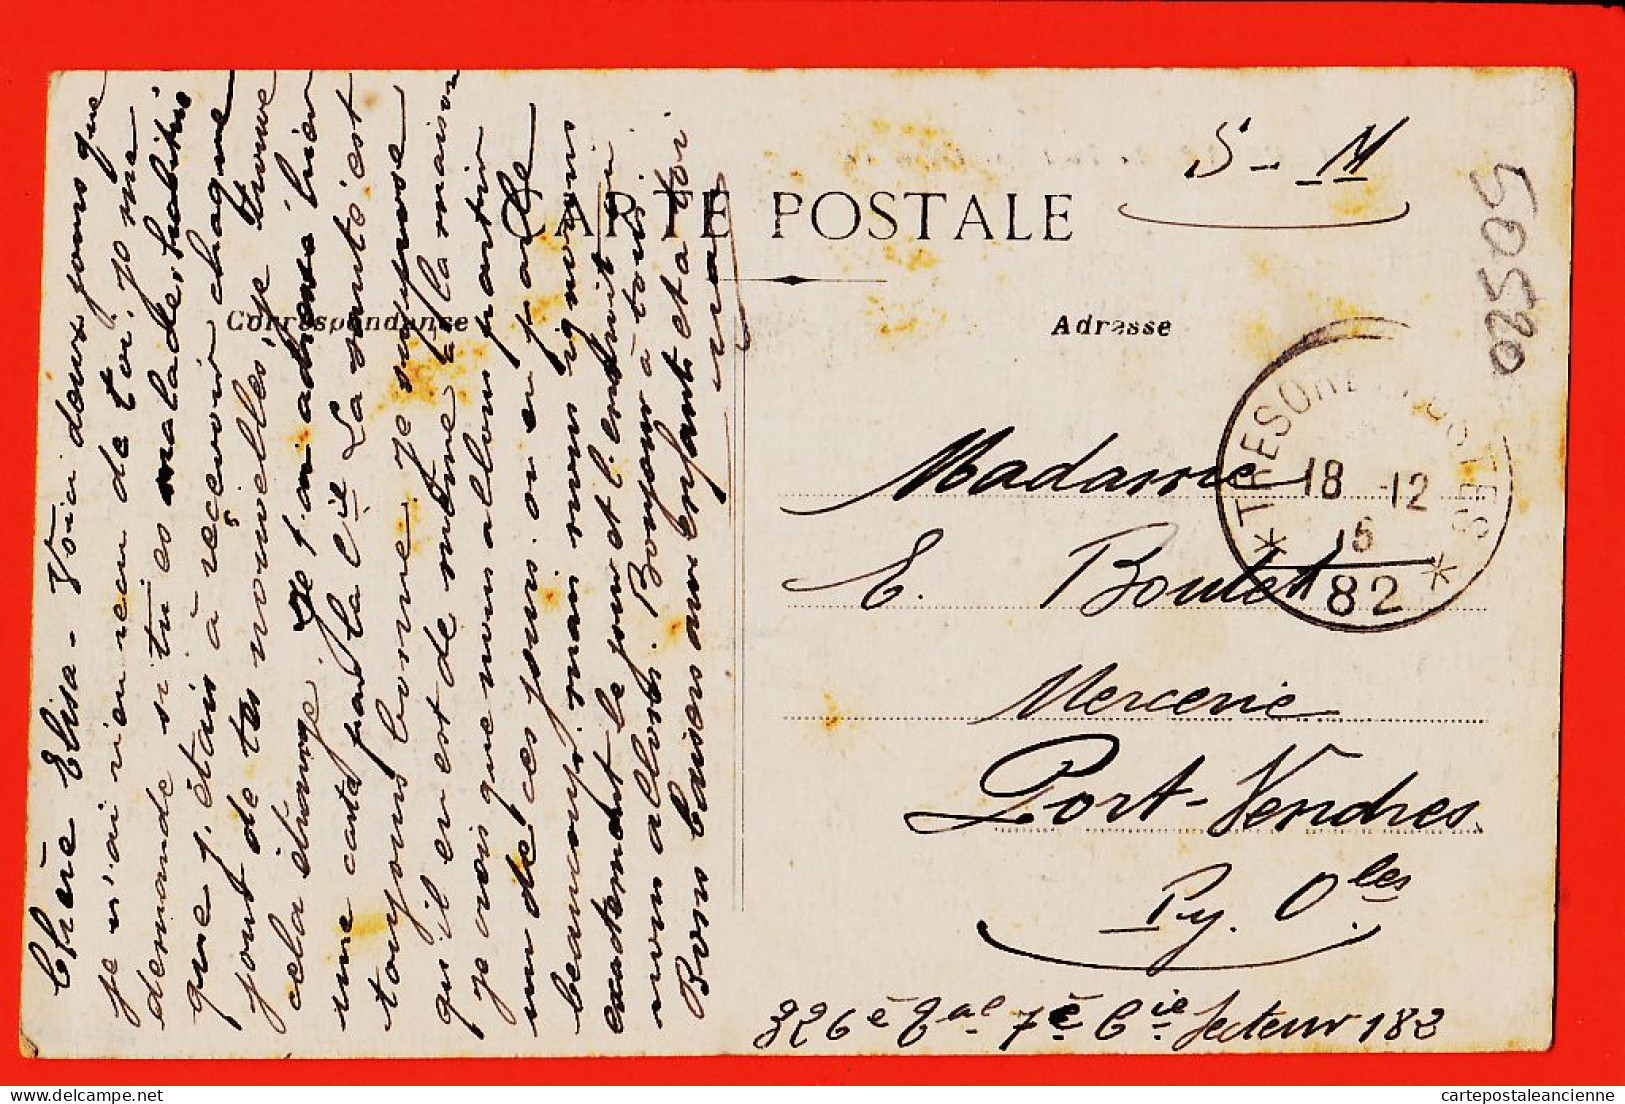 S - M
CARTE POSTALE
Correspondance
Adresse
50520
TRESOR ET POSTES
18 -12
15
* 82 *
Madame
E. Boutet
Mercerie
Port-Vendres
Py. Oles
326è 7è Cie Secteur 182
Chère Elisa - Voici deux jours que
je n'ai rien recu de toi, je me
demande si tu es malade, habitué
que j'étais à recevoir chaque
jour de tes nouvelles, je trouve
cela étrange. Je t'ai adressé hier
une carte par la Cie La santé est
toujours bonne. Je suppose
qu'il en est de même à la maison
Je crois que nous allons partir
un de ces jours. on en parle
beaucoup, mais nous ignorons
exactement le jour et l'endroit où
nous allons. Bonjour à tous
Bons baisers aux enfants et à toi
cartepostaleancienne